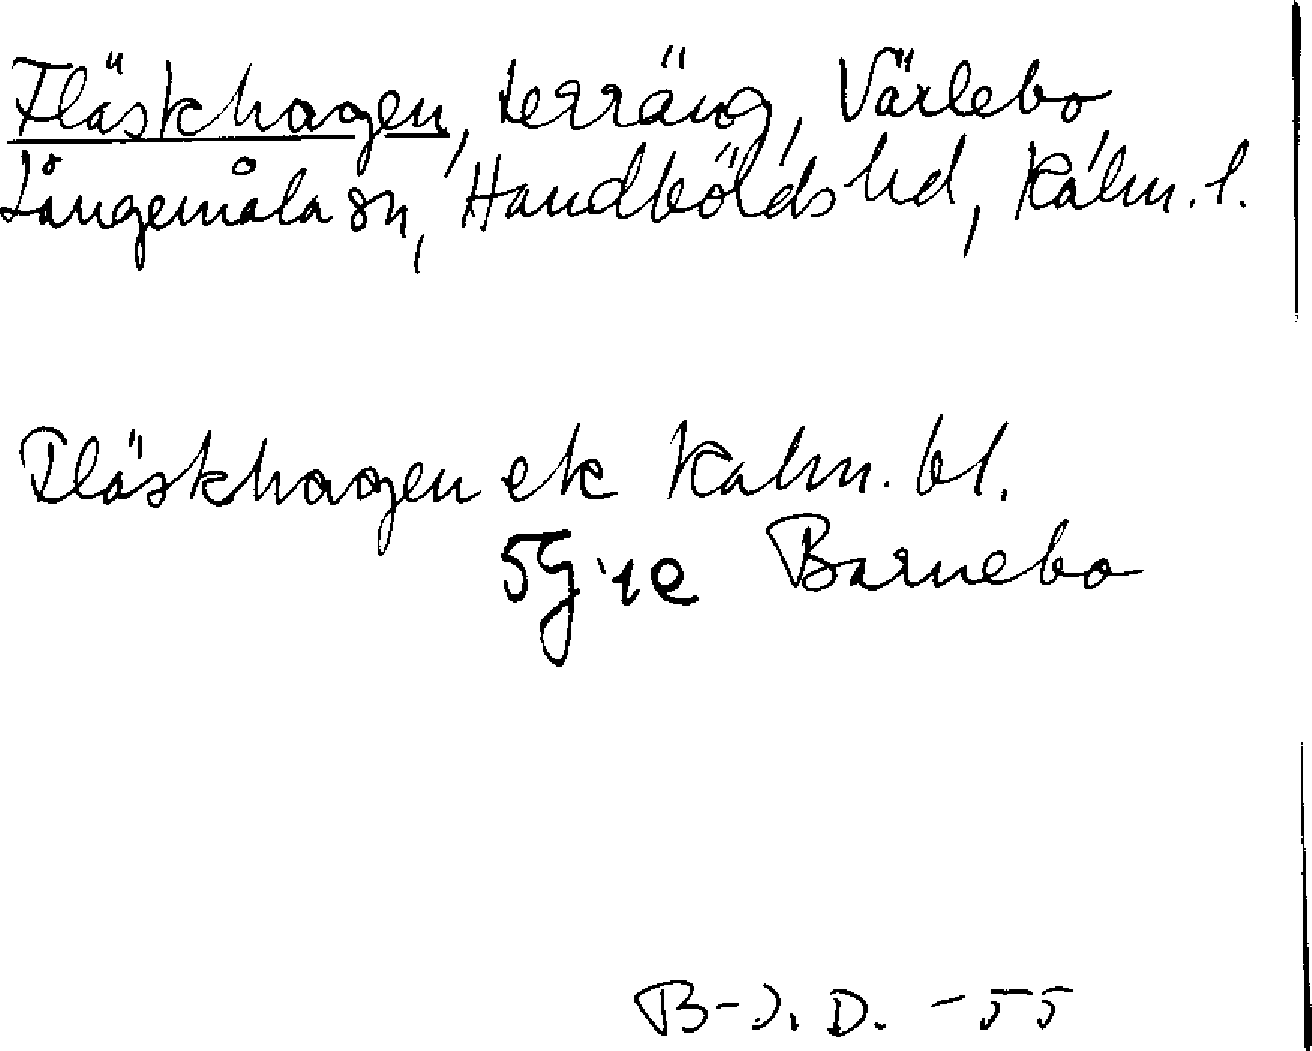 Fläskhagen, terräng, Värlebo
Långemåla sn, Handbölds hd, Kalm. l.
Fläskhagen ek Kalm. bl.
5G:1e Barnebo
B-J. D. -55